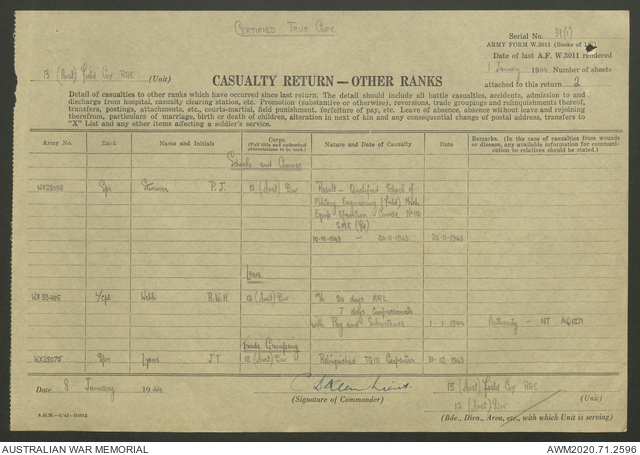 CERTIFIED TRUE COPY.
Serial No. 39(1)
ARMY FORM W.3011 (Books of
13 (Aust) Field Coy RAE (Unit)
Date of last A.F. W.3011 rendered
1 January 1944 Number of sheets
attached to this return 2
CASUALTY RETURN—OTHER RANKS
Detail of casualties to other ranks which have occurred since last return. The detail should include all battle casualties, accidents, admission to and
discharge from hospital, casualty clearing station, etc. Promotion (substantive or otherwise), reversions, trade groupings and relinquishments thereof,
transfers, postings, attachments, etc., courts-martial, field punishment, forfeiture of pay, etc. Leave of absence, absence without leave and rejoining
therefrom, particulars of marriage, birth or death of children, alteration in next of kin and any consequential change of postal address, transfers to
"X" List and any other items affecting a soldier's service.
Army No. Rank Name and Initials Corps (Full title and authorized abbreviations to be used.) Nature and Date of Casualty Date Remarks. (In the case of casualties from wounds or disease, any available information for communication to relatives should be stated.)
Schools and Courses
Spr P.J. 12 (Aust) Div Result - Qualified School of
Military Engineering (Field) Mech
Equip Operation Course No
SME
20-11-1943 20-11-1943
Leave
L/Cpl Webb R.W.H 12 (Aust) Div 24 days ARL
7 days Compassionate
with Pay and Subsistence 1-1-1944 Authority - NT
Trade Grouping
Spr Lyons J.T 12 (Aust) Div Relinquished TGIII Carpenter 31-12-1943
Date 8 January 1944
(Signature of Commander)
13 (Aust) Field Coy RAE (Unit)
12 (Aust) Div
(Bde., Divn., Area, etc., with which Unit is serving)
AUSTRALIAN WAR MEMORIAL
AWM2020.71.2596